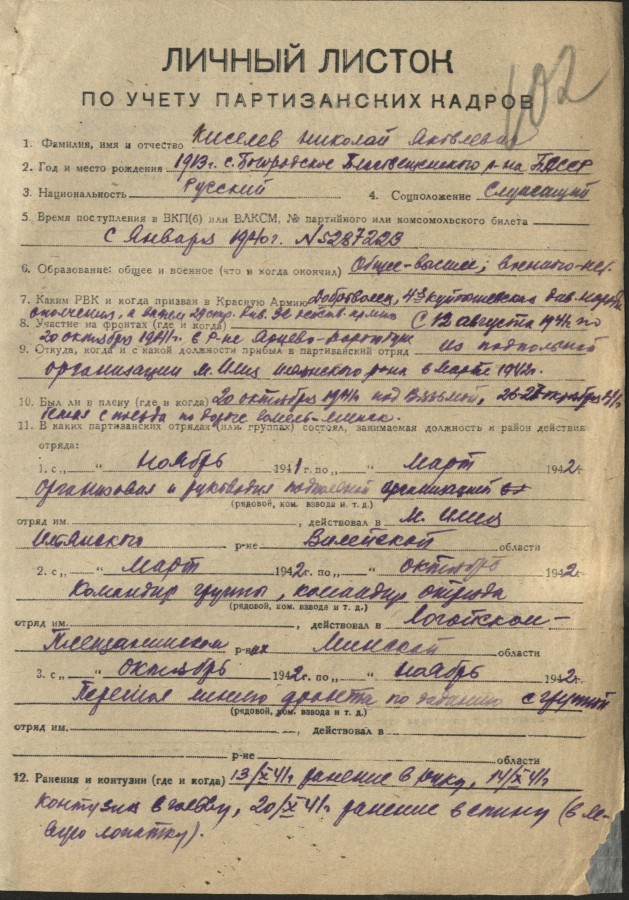 102
ЛИЧНЫЙ ЛИСТОК
ПО УЧЕТУ ПАРТИЗАНСКИХ КАДРОВ
1. Фамилия, имя и отчество Киселев Николай Яковлевич
2. Год и место рождения 1913г. с. Богородское Благовещенского р-на БАССР
3. Национальность Русский 4. Соцположение Служащий
5. Время поступления в ВКП(б) или ВЛКСМ, № партийного или комсомольского билета
С Января 1940г. N5287223
6. Образование: общее и военное (что и когда окончил) Общее-высшее; военного-нет.
7. Каким РВК и когда призван в Красную Армию Доброволец, 4й Куйбышевского див. народн
ополчения, а затем 29 стр. див.
8. Участие на фронтах (где и когда) С 12 августа 1941г по
20 октября 1941г. в р-не
9. Откуда, когда и с какой должности прибыл в партизанский отряд из подпольной
организации м. Илиц района в Марте 1942г.
10. Был ли в плену (где и когда) 20 октября 1941г под Вязьмой, 26-27 октября 41г
с поезда по дороге Минск.
11. В каких партизанских отрядах (или группах) состоял, занимаемая должность и район действия
отряда:
1. с „ “ Ноябрь 1941г. по „ “ март 1942г.
организовал и руководил подпольной организацией
(рядовой, ком. взвода и т. д.)
отряд им. , действовал в м. Илиц
Илянского р-не Вилейской области
2. с „ “ Март 1942г. по „ “ октябрь 1942г.
Командир группы, командир отряда
(рядовой, ком. взвода и т. д.)
отряд им. , действовал в Логойском-
Плещаницком р-нах Минской области
3. с „ “ Октябрь 1942г. по „ “ Ноябрь 1942г.
Перешел линию фронта по заданию с группой
(рядовой, ком. взвода и т. д.)
отряд им. , действовал в
р-не области
12. Ранения и контузии (где и когда) 13/X 41г ранение в руку, 14/X 41г
контузия в голову, 20/X 41г ранение в спину (в ле-
вую лопатку).